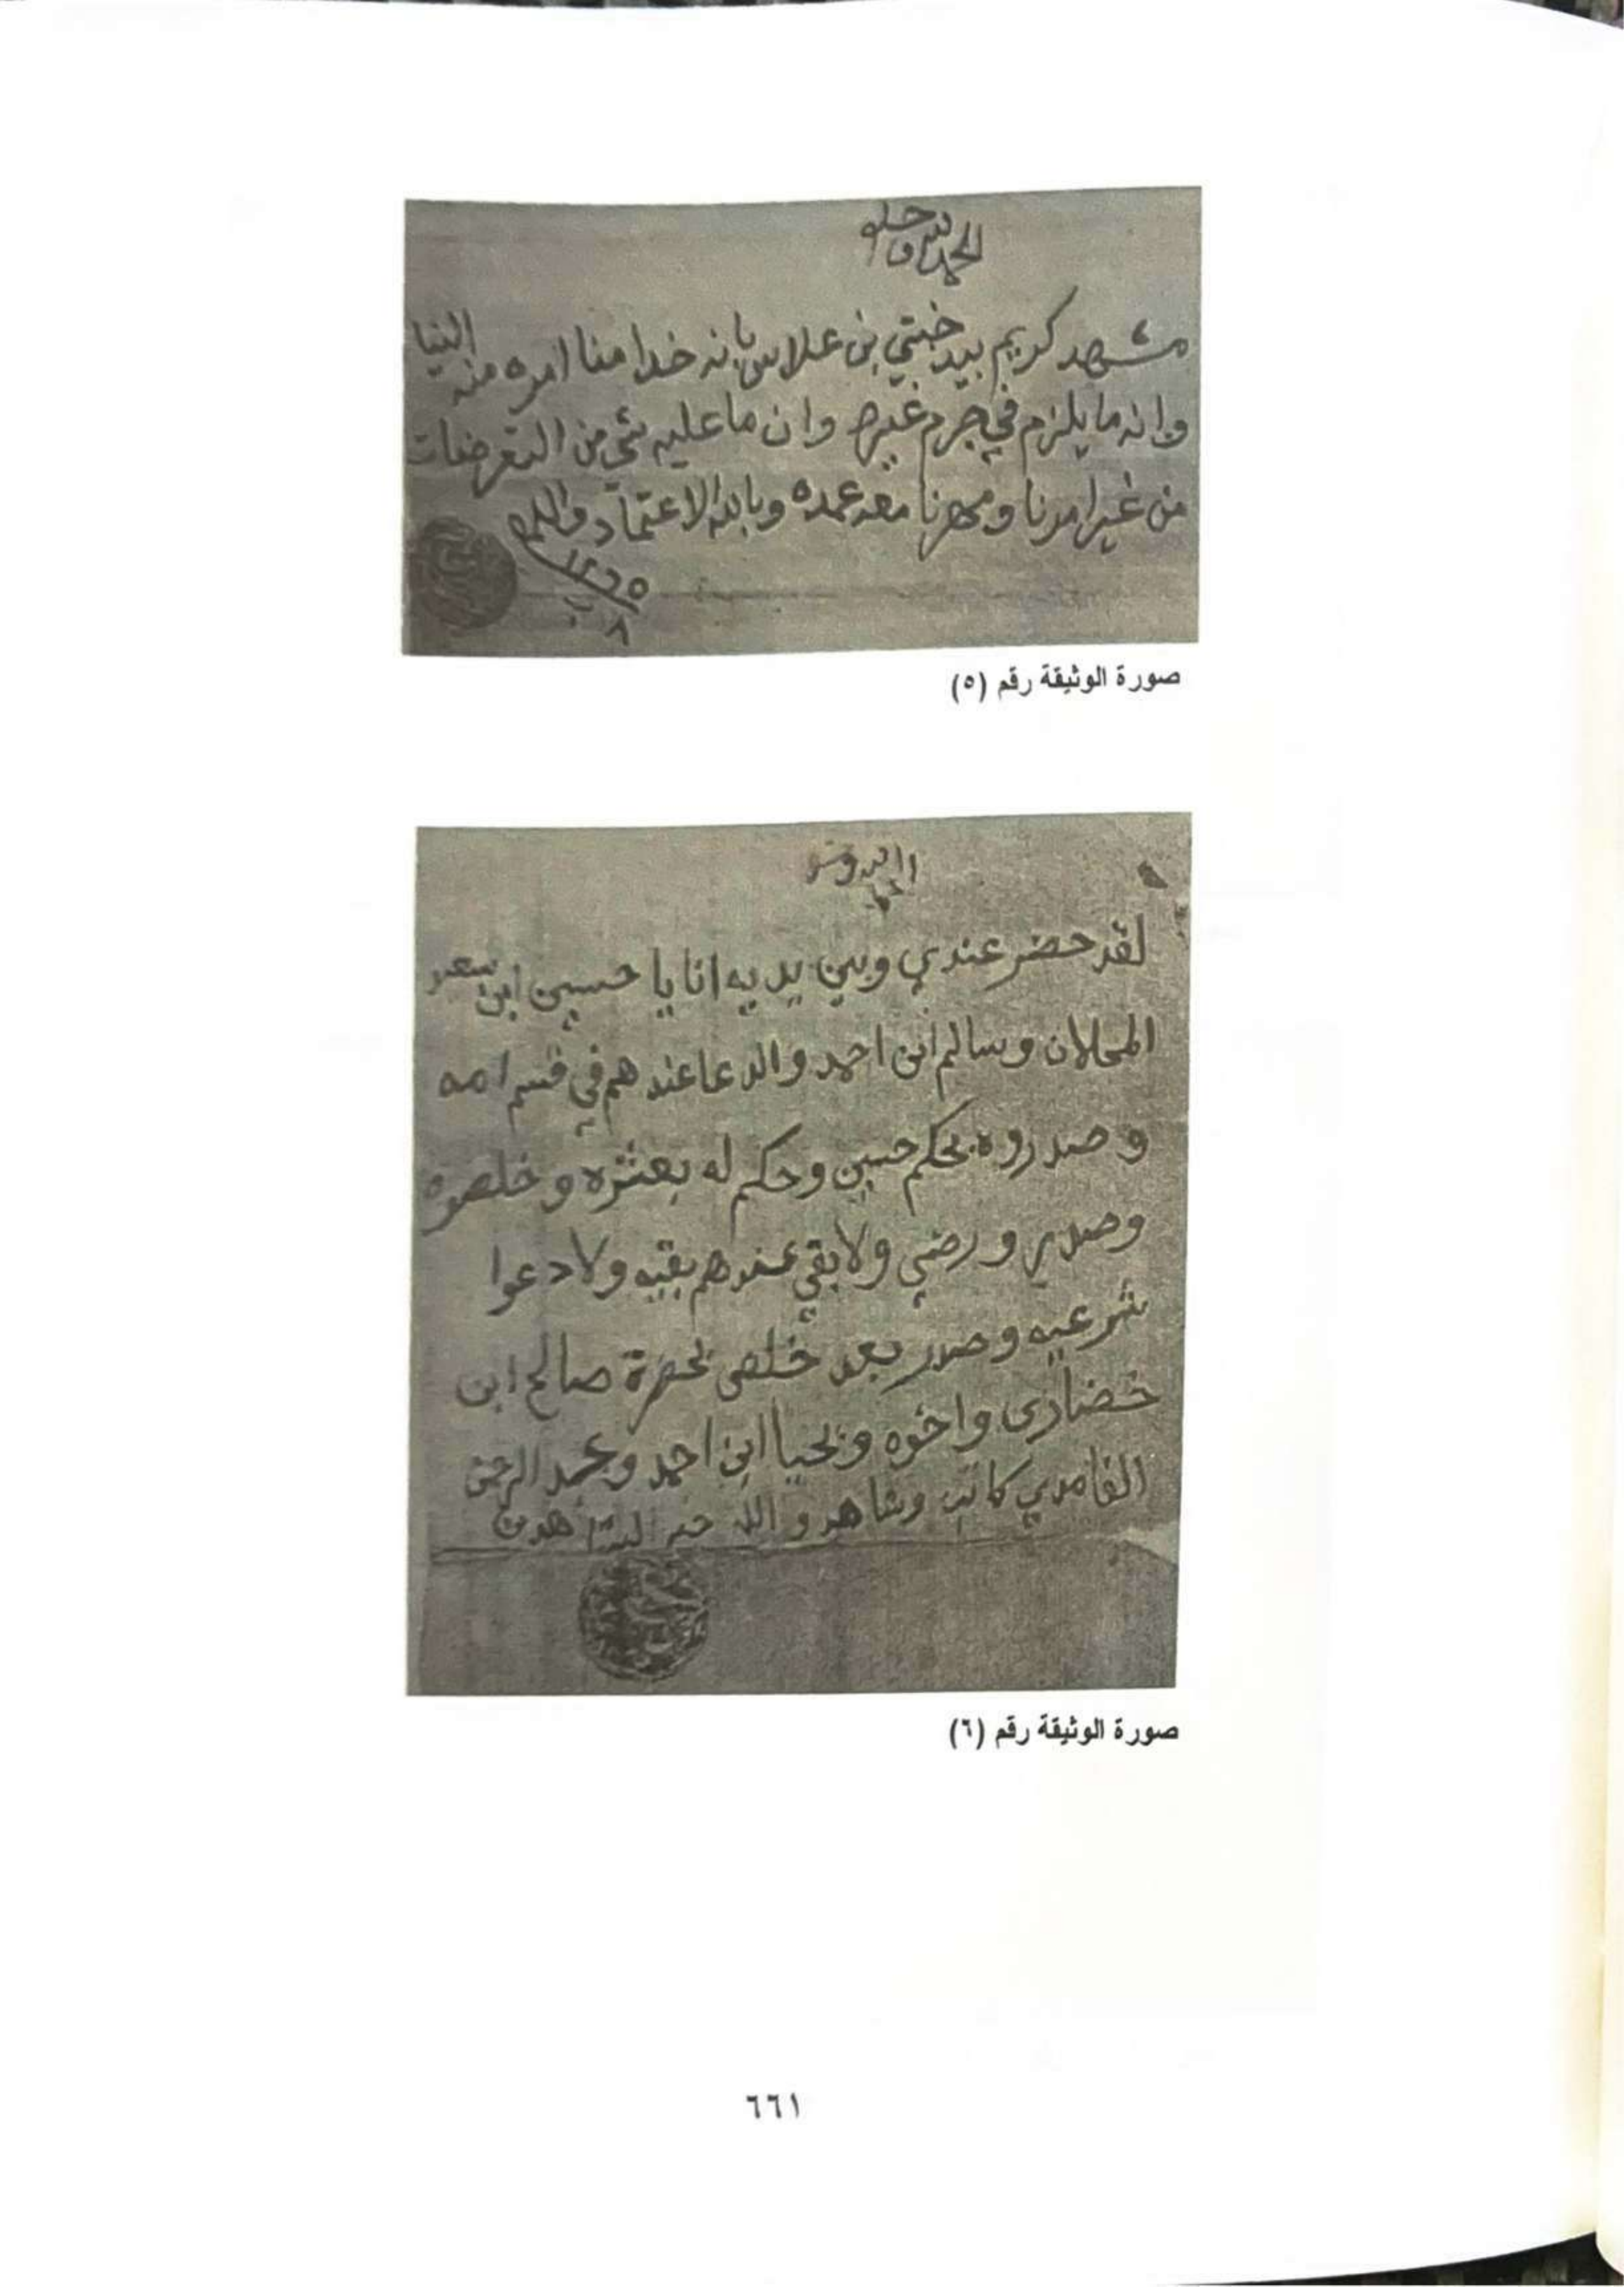 الحمد لله وحده
مشهد كريم بيد خبتي بن علاس بانه خدا منا امره منه
وانه ما يلزم في جرم غيره وان ما عليه شي من التعرضات
من غير امرنا ومهرنا معه عمده وبالله الاعتماد والله
١٢٦٥
٨
صورة الوثيقة رقم (٥)
لقد حضر عندي وبين يديه انا يا حسين ابن سعد
وسالم ابن احمد والدعا عندهم في قسم امه
وصدروه بحكم حسين وحكم له بعشره وخلصوه
وصدر ورضي ولا بقي عندهم بقيه ولا دعوا
شرعيه وصدر بعد خلص بحضرة صالح ابن
خضارى واخوه ويحيا ابن احمد ومحمد الرحمن
الغامدي كاتب وشاهد والله خير الشاهدين
صورة الوثيقة رقم (٦)
٦٦١